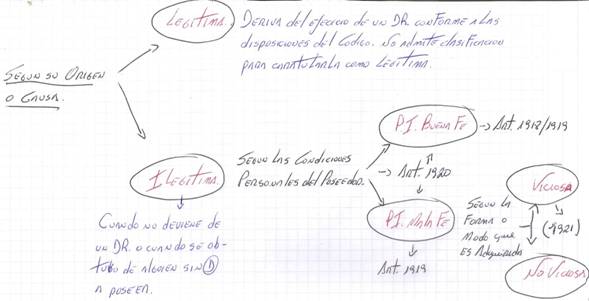 Legítima.
Deriva del ejercicio de un DR. conforme a las
disposiciones del Código. No admite clasificación
para caratularla como Legítima.
Según su Origen
o Causa.
Ilegítima.
Cuando no deviene de
un DR. o cuando se ob-
tubo de alguien sin D
a poseer.
Según las Condiciones
Personales del Poseedor.
P.I. Buena Fe
→ Art. 1918/1919
→ Art. 1920
P.I. Mala Fe
Art. 1919
Según la
Forma o
Modo que
es Adquirida
Viciosa
(1921)
No Viciosa